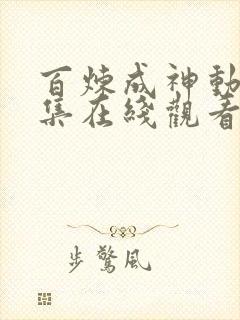 百煉成神動
集在綫觀看
步驚風